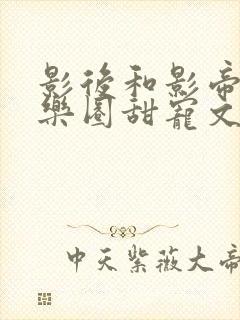 影後和影帝
樂圈甜寵文
中天紫薇大帝